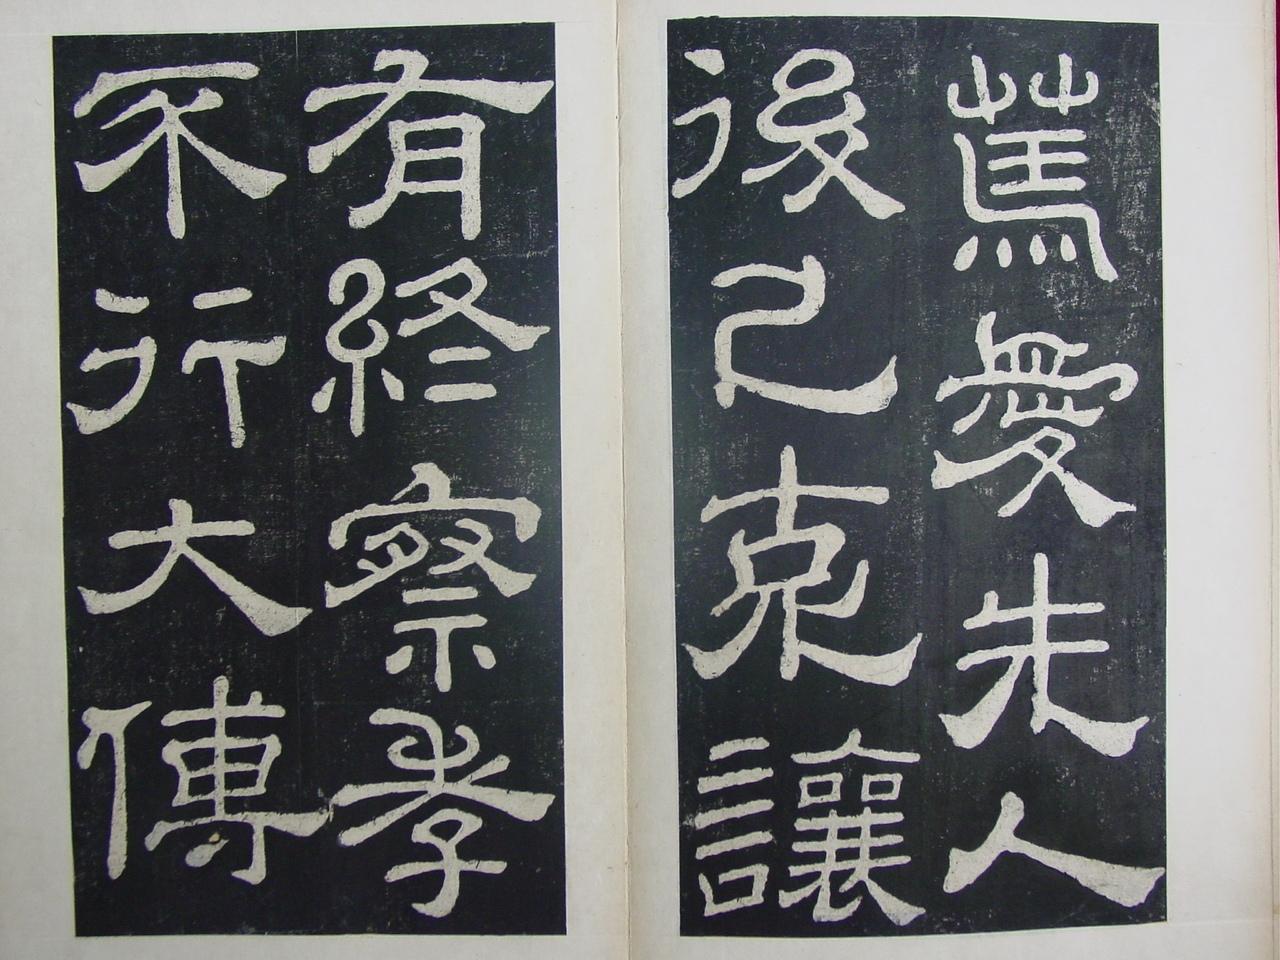 篤愛先人
後己克讓
有終察孝
不行大傅